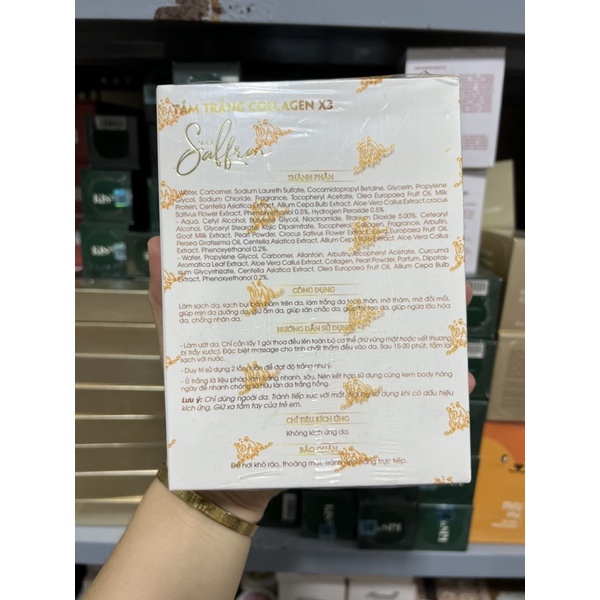 TẮM TRẮNG COLLAGEN X3
Saffron
THÀNH PHẦN
- Water, Carbomer, Sodium Laureth Sulfate, Cocamidopropyl Betaine, Glycerin, Propylene
Glycol, Sodium Chloride, Fragrance, Tocopheryl Acetate, Olea Europaea Fruit Oil, Milk
Protein, Centella Asiatica Extract, Allium Cepa Bulb Extract, Aloe Vera Callus Extract, crocus
Sativus Flower Extract, Phenoxyethanol 0.5%, Hydrogen Peroxide 0.5%
- Aqua, Cetyl Alcohol, Butylene Glycol, Niacinamide, Titanium Dioxide 5.00%, Cetearyl
Alcohol, Glyceryl Stearate, Kojic Dipalmitate, Tocopherol, Collagen, Fragrance, Arbutin,
Goat Milk Extract, Pearl Powder, Crocus Sativus Flower Extract, Olea Europaea Fruit Oil,
Persea Gratissima Oil, Centella Asiatica Extract, Allium Cepa Extract, Aloe Vera Callus
Extract, Phenoxyethanol 0.2%.
- Water, Propylene Glycol, Carbomer, Allantoin, Arbutin, Tocopheryl Acetate, Curcuma
Aromatica Leaf Extract, Aloe Vera Callus Extract, Collagen, Pearl Powder, Parfum, Dipotas-
sium Glycyrrhizate, Centella Asiatica Extract, Olea Europaea Fruit Oil, Allium Cepa Bulb
Extract, Phenoxyethanol 0,2%
CÔNG DỤNG
Làm sạch da, sạch bụi bẩn bám trên da, làm trắng da toàn thân, mờ thâm, mờ đồi mồi,
giúp mịn da dưỡng da, giữ ẩm da, giúp săn chắc da, giúp tái tạo da, giảm lão hóa
da, chống nhăn da.
HƯỚNG DẪN SỬ DỤNG
- Làm ướt da. Chỉ cần lấy 1 gói thoa đều lên toàn bộ cơ thể (trừ vùng mặt hoặc vết thương
bị trầy xước). Đặc biệt massage cho tinh chất thấm đều vào da. Sau 15-20 phút, tắm lại
sạch với nước.
- Duy trì sử dụng 2 lần/tuần để đạt độ trắng như ý.
- Ủ trắng là liệu pháp làm trắng nhanh, sâu. Nên kết hợp sử dụng cùng kem body hàng
ngày để nhanh chóng sở hữu làn da trắng hồng.
Lưu ý: Chỉ dùng ngoài da. Tránh tiếp xúc với mắt. Ngưng sử dụng khi có dấu hiệu
kích ứng. Giữ xa tầm tay của trẻ em.
CHỈ TIÊU KÍCH ỨNG
Không kích ứng da.
BẢO QUẢN
Để nơi khô ráo, thoáng mát, tránh ánh nắng trực tiếp.